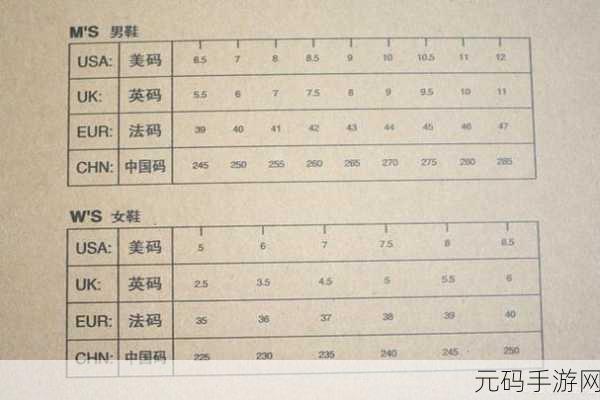 M'S 男鞋
USA: 美码 6.5 7 8 8.5 9 10 10.5 11 12
UK: 英码 5.5 6 7 7.5 8 9 9.5 10 11
EUR: 法码 39 40 41 42 43 44 45 46 47
CHN: 中国码 245 250 255 260 265 270 275 280 285
W'S 女鞋
USA: 美码 5 6 7 7.5 8 8.5
UK: 英码 2.5 3.5 4.5 5 5.5 6
EUR: 法码 35 36 37 38 39 40
CHN: 中国码 225 230 235 240 245 250
元码手游网